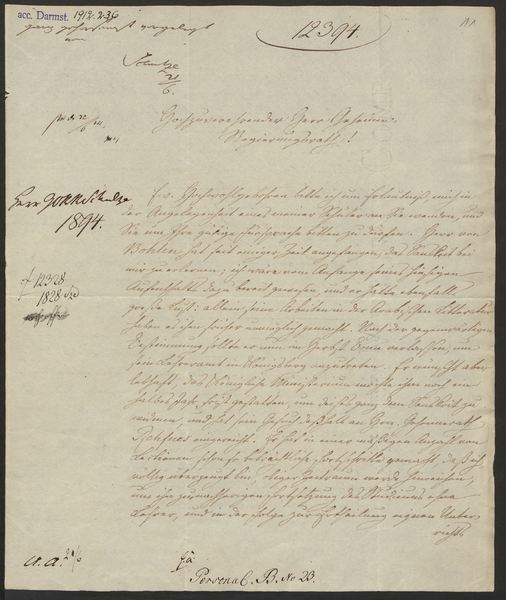 acc. Darmst. 1912. 236
ganz gehorsamst vorgelegt
12394.
Schulze
21/6.
Hochzuverehrender Herr Geheimer
Regierungsrath!
Herr GORR Schulze
1894.
12328
1828
Ew. Hochwohlgebohren bitte ich um Erlaubniß, mich in
der Angelegenheit eines meiner Schüler an Sie wenden, und
Sie um Ihre gütige Fürsprache bitten zu dürfen. Herr von
Bohlen hat seit einiger Zeit angefangen, das Sanskrit bei
mir zu erlernen; ich wäre vom Anfange seines hiesigen
Aufenthalts dazu bereit gewesen, und er hatte ebenfalls
große Lust: allein seine Arbeiten in der Arabischen Litteratur
haben es ihm bisher unmöglich gemacht. Nach der gegenwärtigen
Bestimmung sollte er nun im Herbst Bonn verlassen, um
sein Lehramt in Königsberg anzutreten. Er wünscht aber
lebhaft, das Königliche Ministerium möchte ihm noch ein
halbes Jahr Frist gestatten, um die Zeit ganz dem Sanskrit zu
widmen, und hat sein Gesuch deßhalb an Hrn. Geheimerath
Rehfues eingereicht. Er hat in einer mäßigen Anzahl von
Lectionen schon so beträchtliche Fortschritte gemacht, daß ich
völlig überzeugt bin, obiger Zeitraum werde hinreichen,
um ihn zu nachheriger Fortsetzung des Studiums ohne
Lehrer, und in der Folge zur Ertheilung eigenen Unter-
richts
Personal. B. No 23.